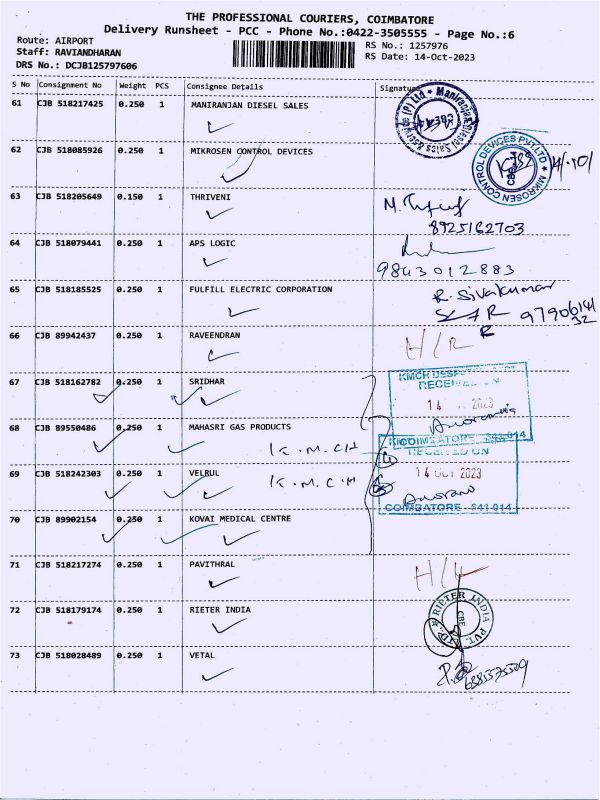 THE PROFESSIONAL COURIERS, COIMBATORE
Delivery Runsheet - PCC - Phone No.:0422-3505555 - Page No.:6
Route: AIRPORT
Staff: RAVIANDHARAN
DRS No.: DCJB125797606
RS No.: 1257976
RS Date: 14-Oct-2023
S No Consignment No Weight PCS Consignee Details Signature
61 CJB 518217425 0.250 1 MANIRANJAN DIESEL SALES
62 CJB 518085926 0.250 1 MIKROSEN CONTROL DEVICES
MIKROSEN CONTROL DEVICES PVT LTD
CBE
63 CJB 518205649 0.150 1 THRIVENI
8925162703
64 CJB 518079441 0.250 1 APS LOGIC
9843012883
65 CJB 518185525 0.250 1 FULFILL ELECTRIC CORPORATION
R. Sivakumar
66 CJB 89942437 0.250 1 RAVEENDRAN
H/R
67 CJB 518162782 0.250 1 SRIDHAR
RECEIVED ON
14 2023
68 CJB 89550486 0.250 1 MAHASRI GAS PRODUCTS
K.M.CH
COIMBATORE - 641 014
RECEIVED ON
69 CJB 518242303 0.250 1 VELRUL
K.M.C.H
14 OCT 2023
COIMBATORE - 641 014
70 CJB 89902154 0.250 1 KOVAI MEDICAL CENTRE
71 CJB 518217274 0.250 1 PAVITHRAL
72 CJB 518179174 0.250 1 RIETER INDIA
RIETER INDIA PVT. LTD
CBE
73 CJB 518028489 0.250 1 VETAL